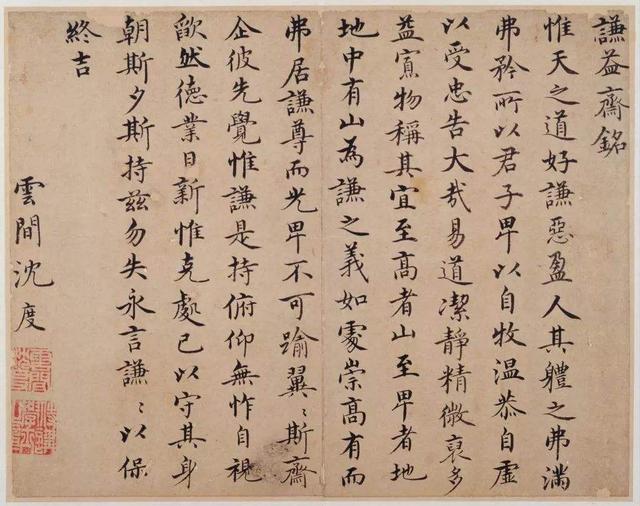 謙益齋銘
惟天之道好謙惡盈人其軆之弗滿
弗矜所以君子卑以自牧溫恭自虛
以受忠告大哉易道潔靜精微裒多
益寡物稱其宜至髙者山至卑者地
地中有山為謙之義如處崇髙有而
弗居謙尊而光卑不可踰翼〻斯齋
企彼先覺惟謙是持俯仰無怍自視
欿然德業日新惟克處已以守其身
朝斯夕斯持茲勿失永言謙〻以保
終吉
雲間沈度